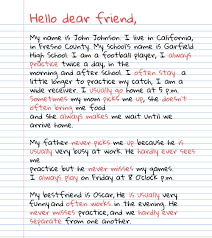 Hello dear friend,
My name is John Johnson. I live in California,
in Fresno County. My school's name is Garfield
High School. I am a football player, I always
practice twice a day, in the
morning and after school. I often stay a
little longer to practice my catch, I am a
wide receiver. I usually go home at 5 p.m.
Sometimes my mom picks me up, she doesn't
often bring me food
and she always makes me wait until we
arrive home.
My father never picks me up because he is
usually very busy at work. He hardly ever sees
me
practice but he never misses my games
I always play on Friday at 8 O'clock p.m.
My bestfriend is Oscar, He is usually very
funny and often works in the evening. He
never misses practice, and we hardly ever
separate from one another.